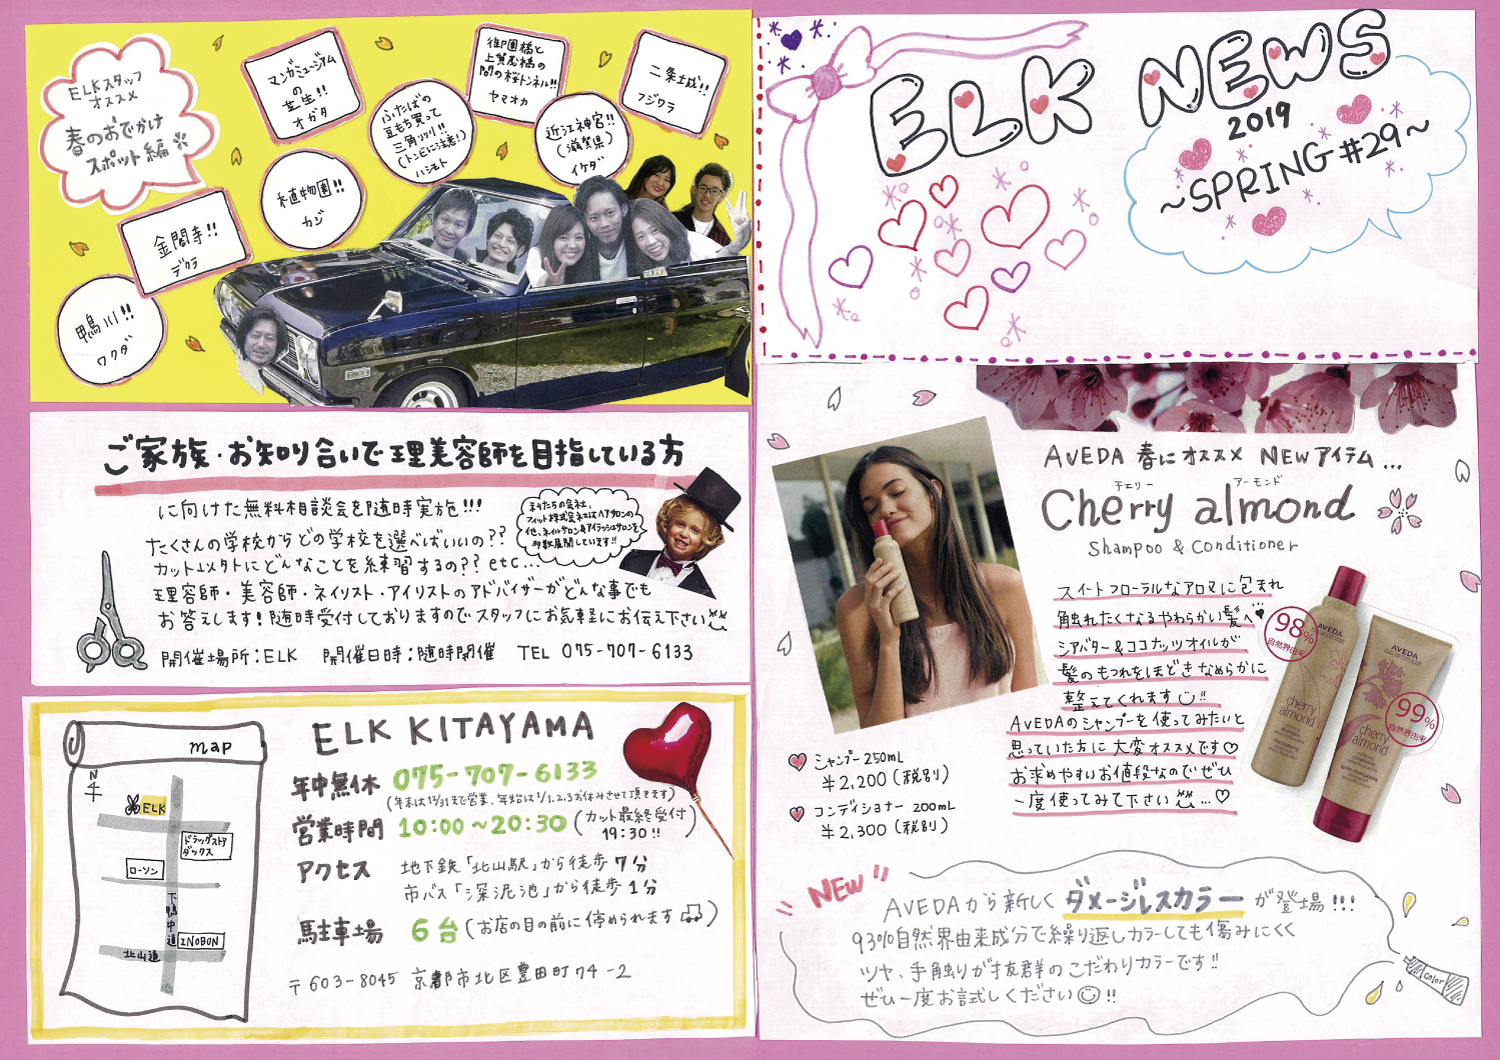 ELKスタッフ
オススメ
春のおでかけ
スポット編
マンガミュージアム
の
芝生!!
オガタ
ふたばの
豆もち買って
三角州!!
(トンビに注意!)
ハシモト
御園橋と
上賀茂橋の
間の桜トンネル!!
ヤマオカ
近江神宮!!
(滋賀県)
イケダ
二条城!!
フジワラ
植物園!!
カジ
金閣寺!!
デグラ
鴨川!!
ワクダ
ELK NEWS
2019
~SPRING #29~
ご家族・お知り合いで理美容師を目指している方
に向けた無料相談会を随時実施!!!
たくさんの学校からどの学校を選べばいいの??
カット以外にどんなことを練習するの?? etc...
理容師・美容師・ネイリスト・アイリストのアドバイザーがどんな事でも
お答えします!随時受付しておりますのでスタッフにお気軽にお伝え下さい
開催場所:ELK 開催日時:随時開催 TEL 075-707-6133
私たちの会社、
フィット株式会社はヘアサロンの
他、ネイルサロン&アイラッシュサロンを
多数展開しています!!
map
N
ELK
ドラッグストア
ダックス
ローソン
下鴨中通
INOBUN
北山通
ELK KITAYAMA
年中無休 075-707-6133
(年末は12/31まで営業、年始は1/1.2.3お休みさせて頂きます)
営業時間 10:00~20:30 (カット最終受付
19:30!!)
アクセス 地下鉄「北山駅」から徒歩7分
市バス「深泥池」から徒歩1分
駐車場 6台(お店の目の前に停められます)
〒603-8045 京都市北区豊田町74-2
AVEDA 春にオススメ NEWアイテム...
チェリー アーモンド
Cherry almond
Shampoo & Conditioner
スイートフローラルなアロマに包まれ
触れたくなるやわらかい髪へ
シアバター&ココナッツオイルが
髪のもつれをほどきなめらかに
整えてくれます!!
AVEDAのシャンプーを使ってみたいと
思っていた方に大変オススメです♡
お求めやすいお値段なのでぜひ
一度使ってみて下さい...♡
98%
自然界由来
AVEDA
cherry
almond
99%
自然界由来
AVEDA
cherry
almond
シャンプー 250mL
¥2,200(税別)
コンディショナー 200mL
¥2,300(税別)
NEW!!
AVEDAから新しくダメージレスカラーが登場!!!
93%自然界由来成分で繰り返しカラーしても傷みにくく
ツヤ、手触りが抜群のこだわりカラーです!!
ぜひ一度お試しください!!
color